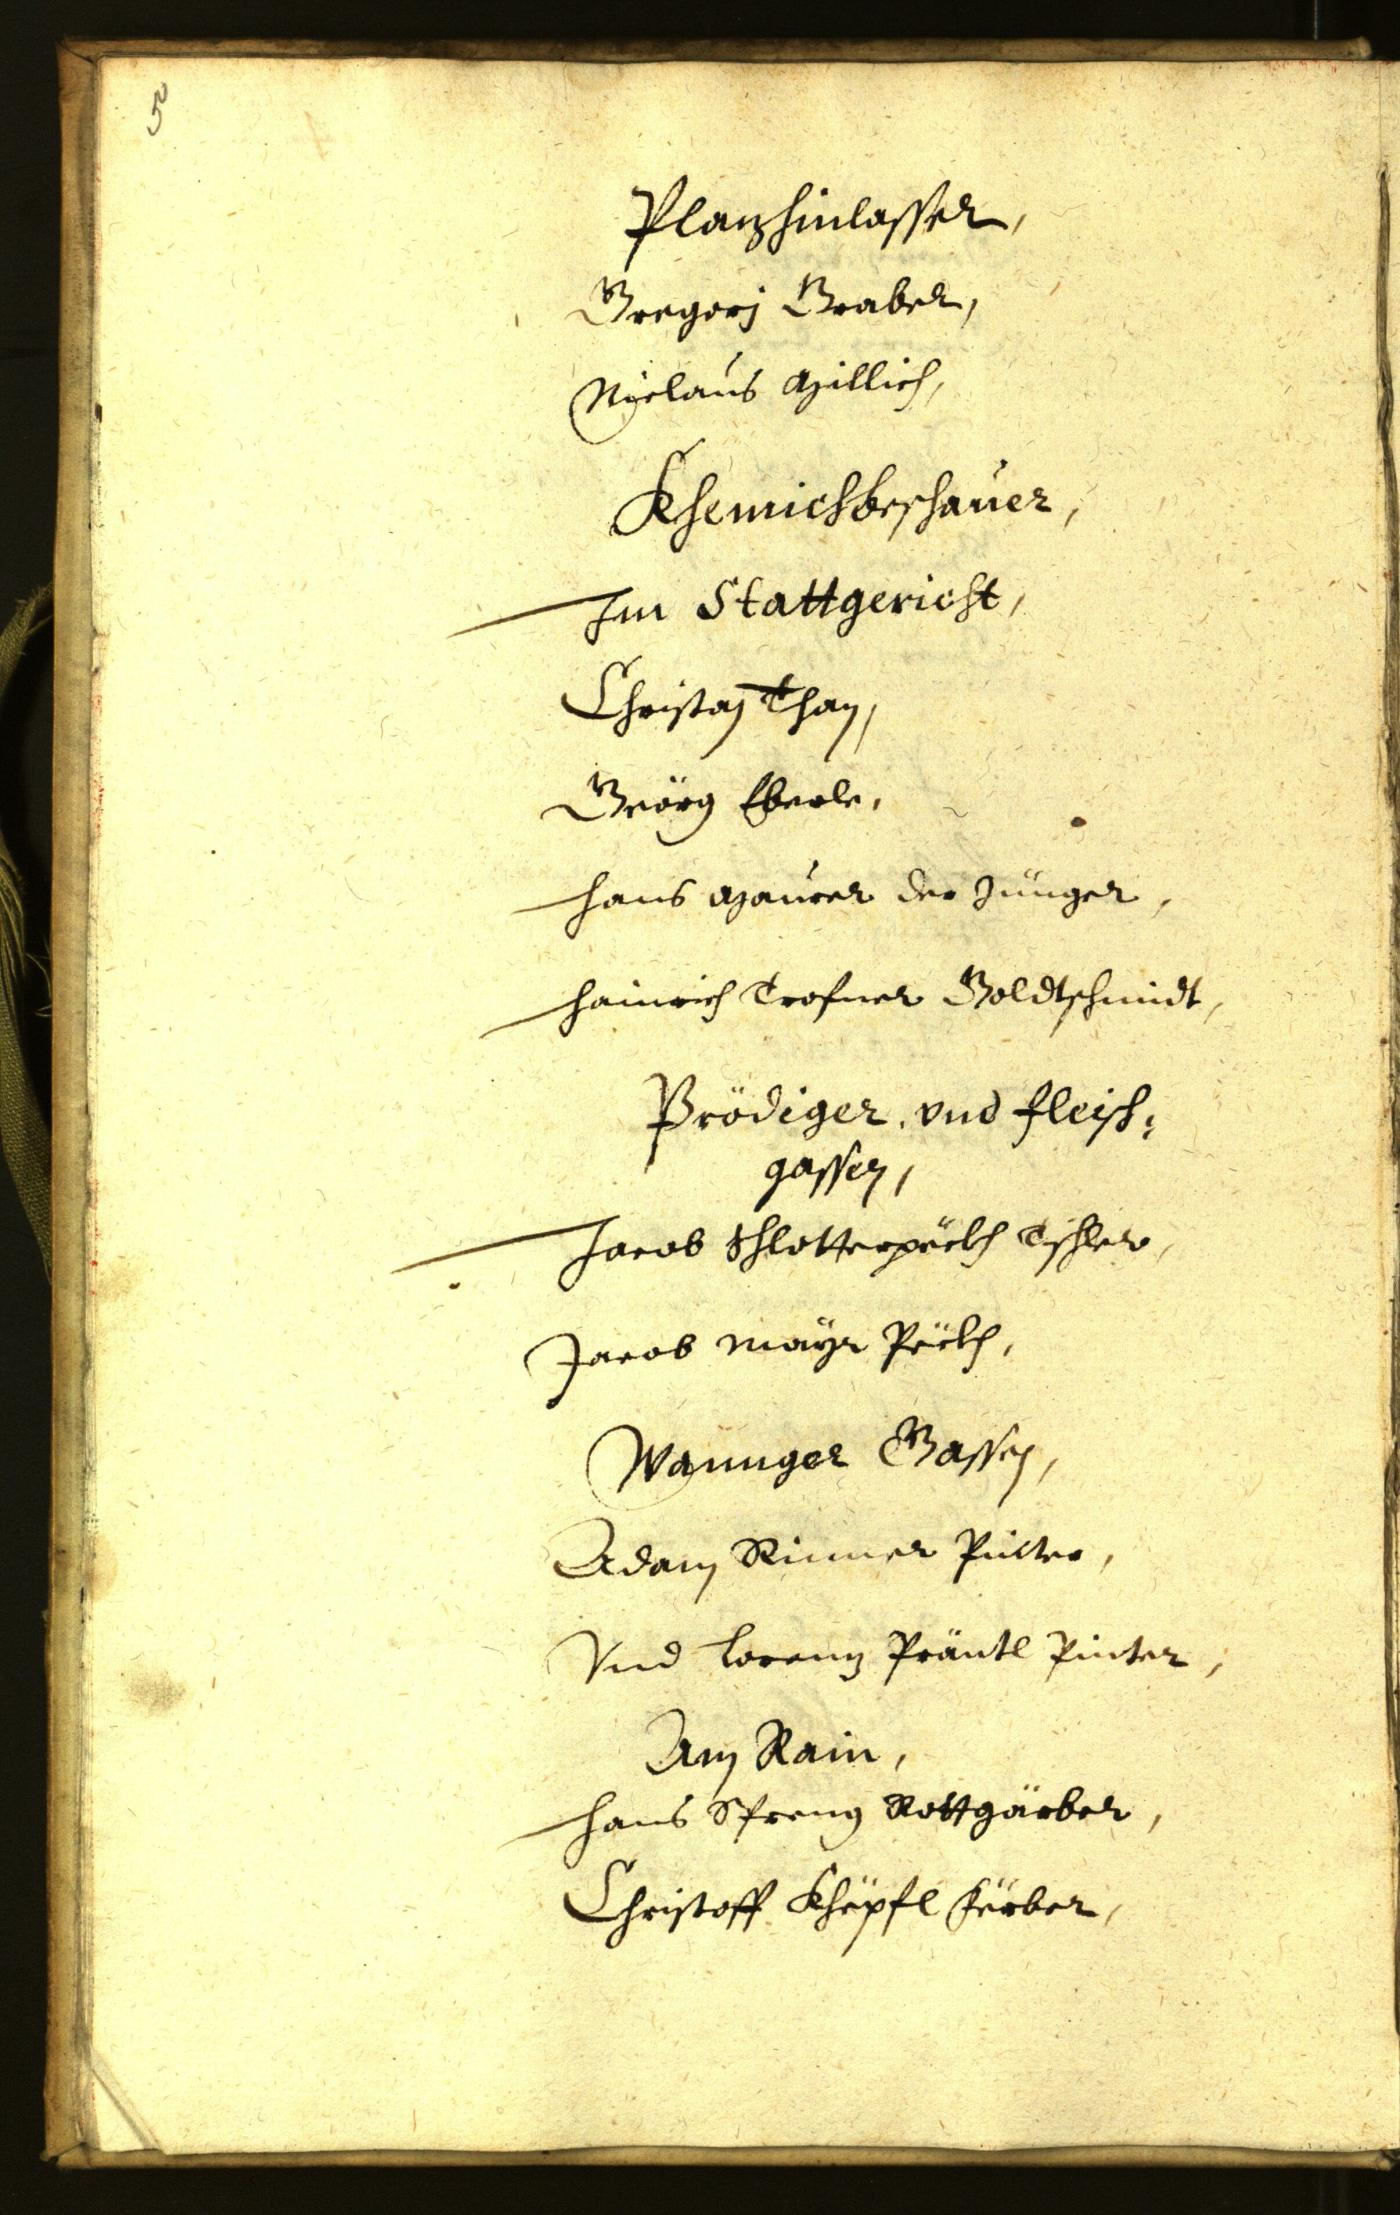 5
Plazhinlasser,
Gregorj Graber,
Niclaus Millich,
Khemichbeschauer,
Im Stattgericht,
Christan Than,
Geörg Eberle,
Hans Maurer der Jünger,
Hainrich Trofner Goldtschmidt,
Prödiger. vnd fleisch:
gassen,
Jacob Schlotterpeckh Tischler,
Jacob Mayr Peckh,
Wannger Gassen,
Adam Rinner Pinter,
Vnd Lorenz Präntl Pinter,
Am Rain,
Hans Spreng Rottgärber,
Christoff Khöpfl Färber,